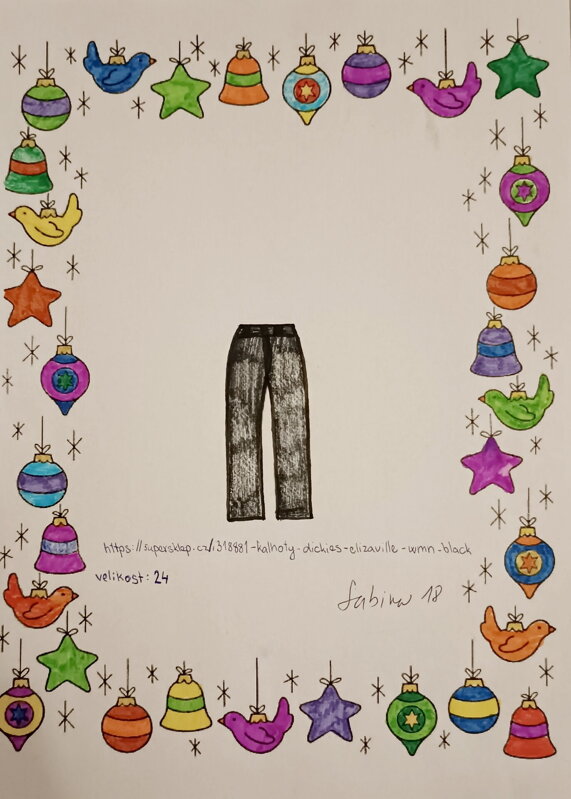 https://supersklep.cz/i318881-kalhoty-dickies-elizaville-wmn-black
velikost: 24
Sabina 18